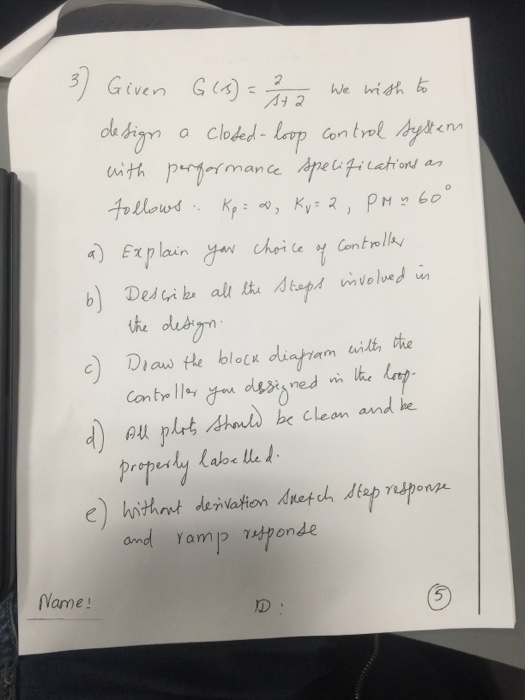 3) Given G(s) = 2/(s+2) We wish to
design a closed-loop control system
with performance specifications as
follows: Kp = ∞, Kv = 2, PM ≈ 60°
a) Explain your choice of controller
b) Describe all the steps involved in
the design.
c) Draw the block diagram with the
controller you designed in the loop.
d) All plots should be clean and be
properly labelled.
e) Without derivation sketch step response
and ramp response
Name: ID: 5